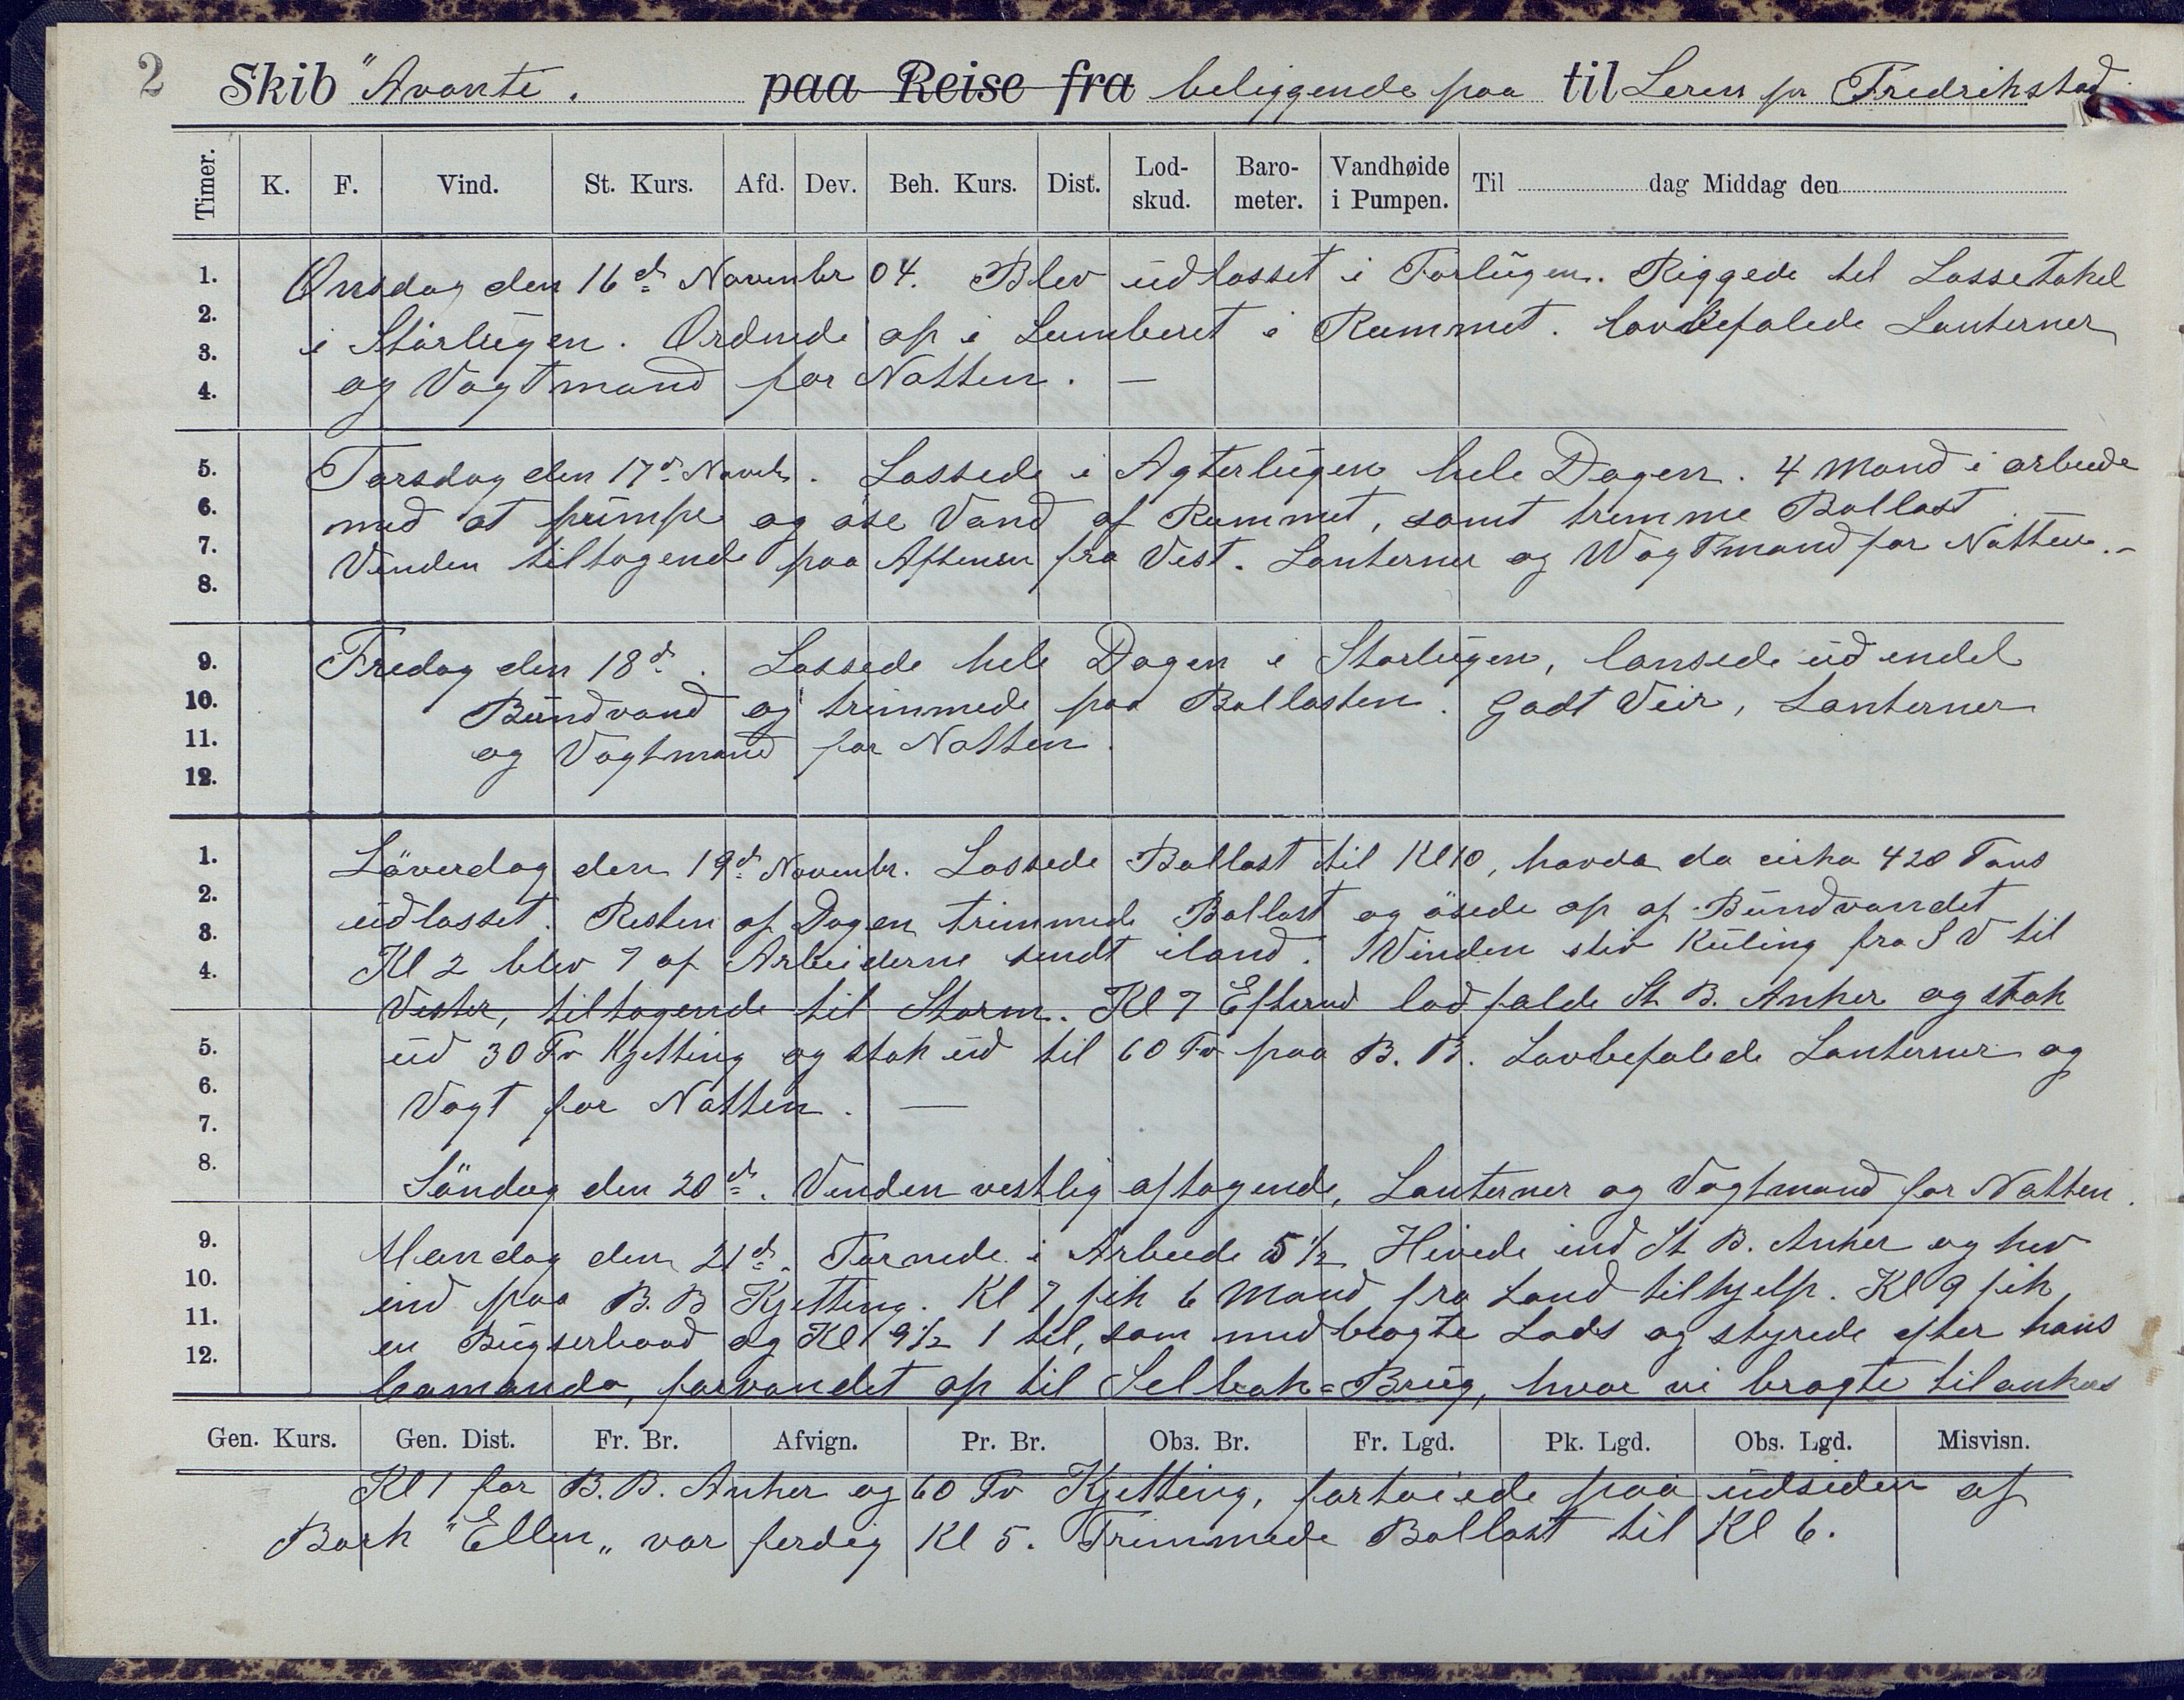 2 Skib "Avanti. paa Reise fra beliggende paa til Leren pr Fredrikstad
Timer. K. F. Vind. St. Kurs. Afd. Dev. Beh. Kurs. Dist. Lod-skud. Baro-meter. Vandhøide i Pumpen. Til dag Middag den
1. Onsdag den 16d Novembr 04. Blev udlosset i Forlugen. Riggede til Lossetakel
2. 3. i Storlugen. Ordnede op i Lumberet i Rummet. Lovbefalede Lanterner
4. og Vagtmand for Natten. —
5. Torsdag den 17d Novcb. Lossede i Agterlugen hele Dagen. 4 Mand i arbeide
6. med at pumpe og öse Vand af Rummet, samt trimme Ballast
7. Vinden tiltagende paa Aftenen fra Vest. Lanterner og Wagtmand for Natten. –
8.
9. Fredag den 18d. Lossede hele Dagen i Storlugen, lansede ud endel
10. Bundvand og trimmede paa Ballasten. Godt Veir, Lanterner
11. og Vagtmand for Natten.
12.
1. Löverdag den 19d Novembr. Lossede Ballast til Kl 10, havde da cirka 420 Tons
2. udlosset. Resten af Dagen trimmede Ballast og ösede op af Bundvandet
3. 4. Kl 2 blev 7 af Arbeiderne sendt iland. Vinden stiv Kuling fra S V til
Vester, tiltagende til Storm. Kl 7 Eftermd lod falde St B. Anker og stak
5. ud 30 Fv Kjetting og stak ud til 60 Fv paa B. B. Lovbefalede Lanterner og
6. 7. Vagt for Natten. —
8. Söndag den 20d. Vinden vestlig aftagende, Lanterner og Vagtmand for Natten.
9. Mandag den 21d. Tornede i Arbeide 5 1/2 Hivede ind St B. Anker og hev
10. ind paa B. B Kjetting. Kl 7 fik 6 Mand fra Land tilhjelp. Kl 9 fik
11. en Bugserbaad og Kl 9 1/2 1 til, som medbragte Lods og styrede efter hans
12. komando, farvandet op til Selbak=Brug, hvor vi bragte tilankers
Gen. Kurs. Gen. Dist. Fr. Br. Afvign. Pr. Br. Obs. Br. Fr. Lgd. Pk. Lgd. Obs. Lgd. Misvisn.
Kl 1 for B. B. Anker og 60 Fv Kjetting, fortøiede paa udsiden af
Bark "Ellen" var ferdig Kl 5. Trimmede Ballast til Kl 6.